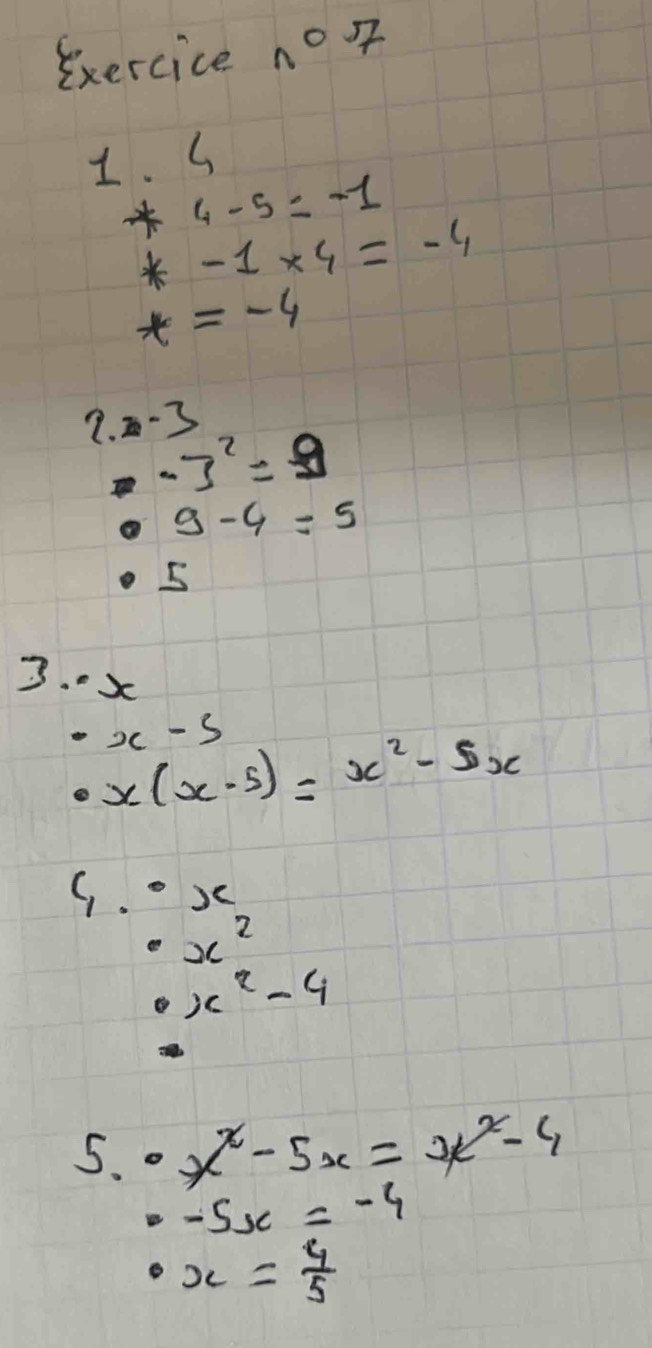 Exercice n° 7
1. 4
* 4 - 5 = -1
* -1 × 4 = -4
* = -4
2. -3
• -3² = 9
• 9 - 4 = 5
• 5
3. • x
• x - 5
• x(x - 5) = x² - 5x
4. • x
• x²
• x² - 4
5. • x² - 5x = x² - 4
• -5x = -4
• x = 4/5